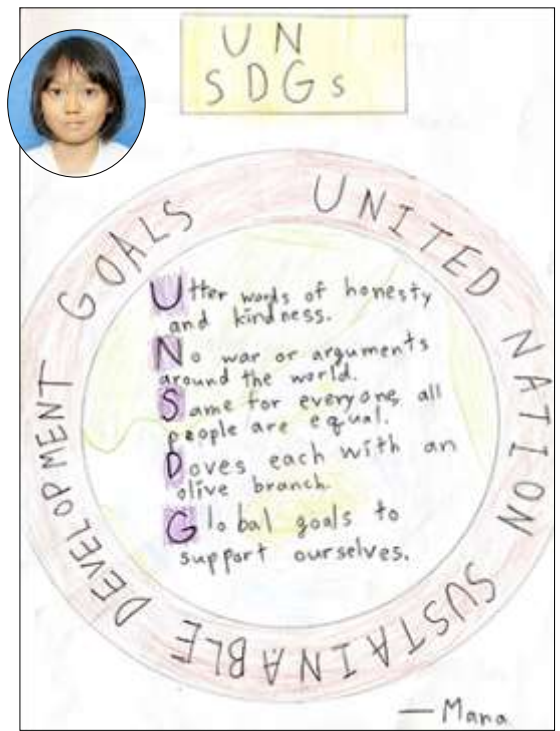 UN
SDGs
UNITED NATION SUSTAINABLE DEVELOPMENT GOALS
Utter words of honesty
and kindness.
No war or arguments
around the world.
Same for everyone, all
people are equal.
Doves each with an
olive branch.
Global goals to
support ourselves.
— Mana